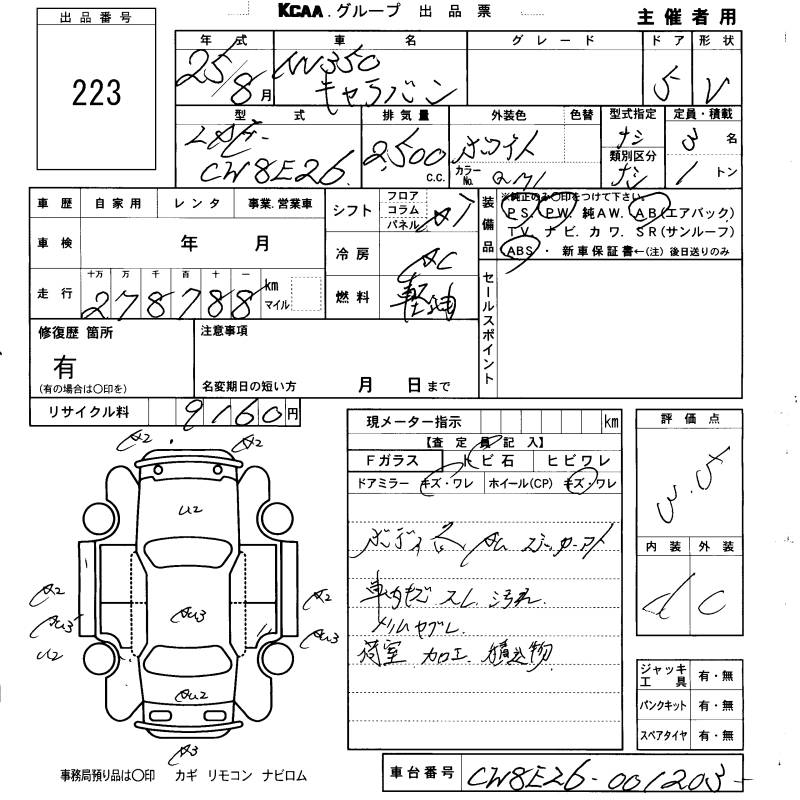 KCAA.グループ 出品票
主催者用
出品番号
223
年式 車名 グレード ドア 形状
25/8月 NV350 キャラバン 5 V
型式 排気量 外装色 色替 型式指定 定員・積載
LDF-CW8E26 2,500c.c. ホワイト カラーNo. ナシ 3名
類別区分 ナシ 1トン
車歴 自家用 レンタ 事業.営業車
車検 年 月
走行 十万 万 千 百 十 一 km マイル
278788
シフト フロア コラム パネル AT
冷房 AC
燃料 軽油
装備品 ※純正のみ〇印をつけて下さい。
PS. PW. 純AW. AB(エアバック)
TV. ナビ. カワ. SR(サンルーフ)
ABS・ 新車保証書←(注) 後日送りのみ
セールスポイント
修復歴 箇所
有
(有の場合は〇印を)
注意事項
名変期日の短い方 月 日まで
リサイクル料 9160円
現メーター指示 km
【査定員記入】
Fガラス トビ石 ヒビワレ
ドアミラー キズ・ワレ ホイール(CP) キズ・ワレ
車内キズ スレ 汚れ
トリムヤブレ
荷室 加工 積込物
評価点
3.5
内装 外装
d C
ジャッキ工具 有・無
パンクキット 有・無
スペアタイヤ 有・無
A2 A2
U2
A2 A2
AU3 AU3 AU3
U2
AU2
A3
事務局預り品は〇印 カギ リモコン ナビロム
車台番号 CW8E26-001203-